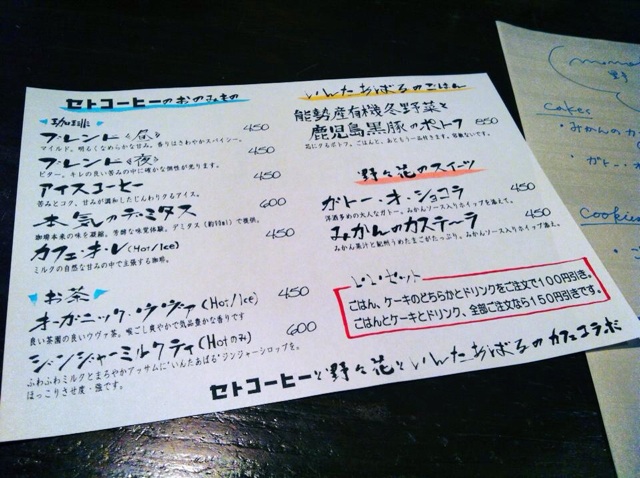 セトコーヒーのおのみもの
珈琲
ブレンド〈昼〉 450
マイルド。明るくなめらかな甘み。香りはさわやかスパイシー。
ブレンド〈夜〉 450
ビター。キレの良い苦みの中に確かな個性が光ります。
アイスコーヒー 450
苦みとコク、甘みが調和したじんわりくるアイス。
本気のデミタス 600
珈琲本来の味を凝縮。芳醇な味覚体験。デミタス(約90ml)で提供。
カフェ・オ・レ(Hot/Ice) 450
ミルクの自然な甘みの中で主張する珈琲。
お茶
オーガニック・ウヴァ(Hot/Ice) 450
良い茶園の良いウヴァ茶。喉ごし爽やかで気品豊かな香りです
ジンジャーミルクティ(Hotのみ) 600
ふわふわミルクとまろやかアッサムに"いんたあばる"ジンジャーシロップを。
ほっこりさせ度・強です。
いんたあばるのごはん
能勢産有機冬野菜と
鹿児島黒豚のポトフ 850
芯にくるポトフ。ごはんと、あともう一品付きます。容赦ないです。
野々花のスイーツ
ガトー・オ・ショコラ 450
洋酒多めの大人なガトー。みかんソース入りホイップを添えて。
みかんのカステーラ 450
みかん果汁と紀州うめたまごがたっぷり。みかんソース入りホイップ添え。
いいセット
ごはん、ケーキのどちらかとドリンクをご注文で100円引き。
ごはんとケーキとドリンク、全部ご注文なら150円引きです。
セトコーヒーと野々花といんたあばるのカフェコラボ
cakes
・みかんのカ
・ガトー・オ
cookies